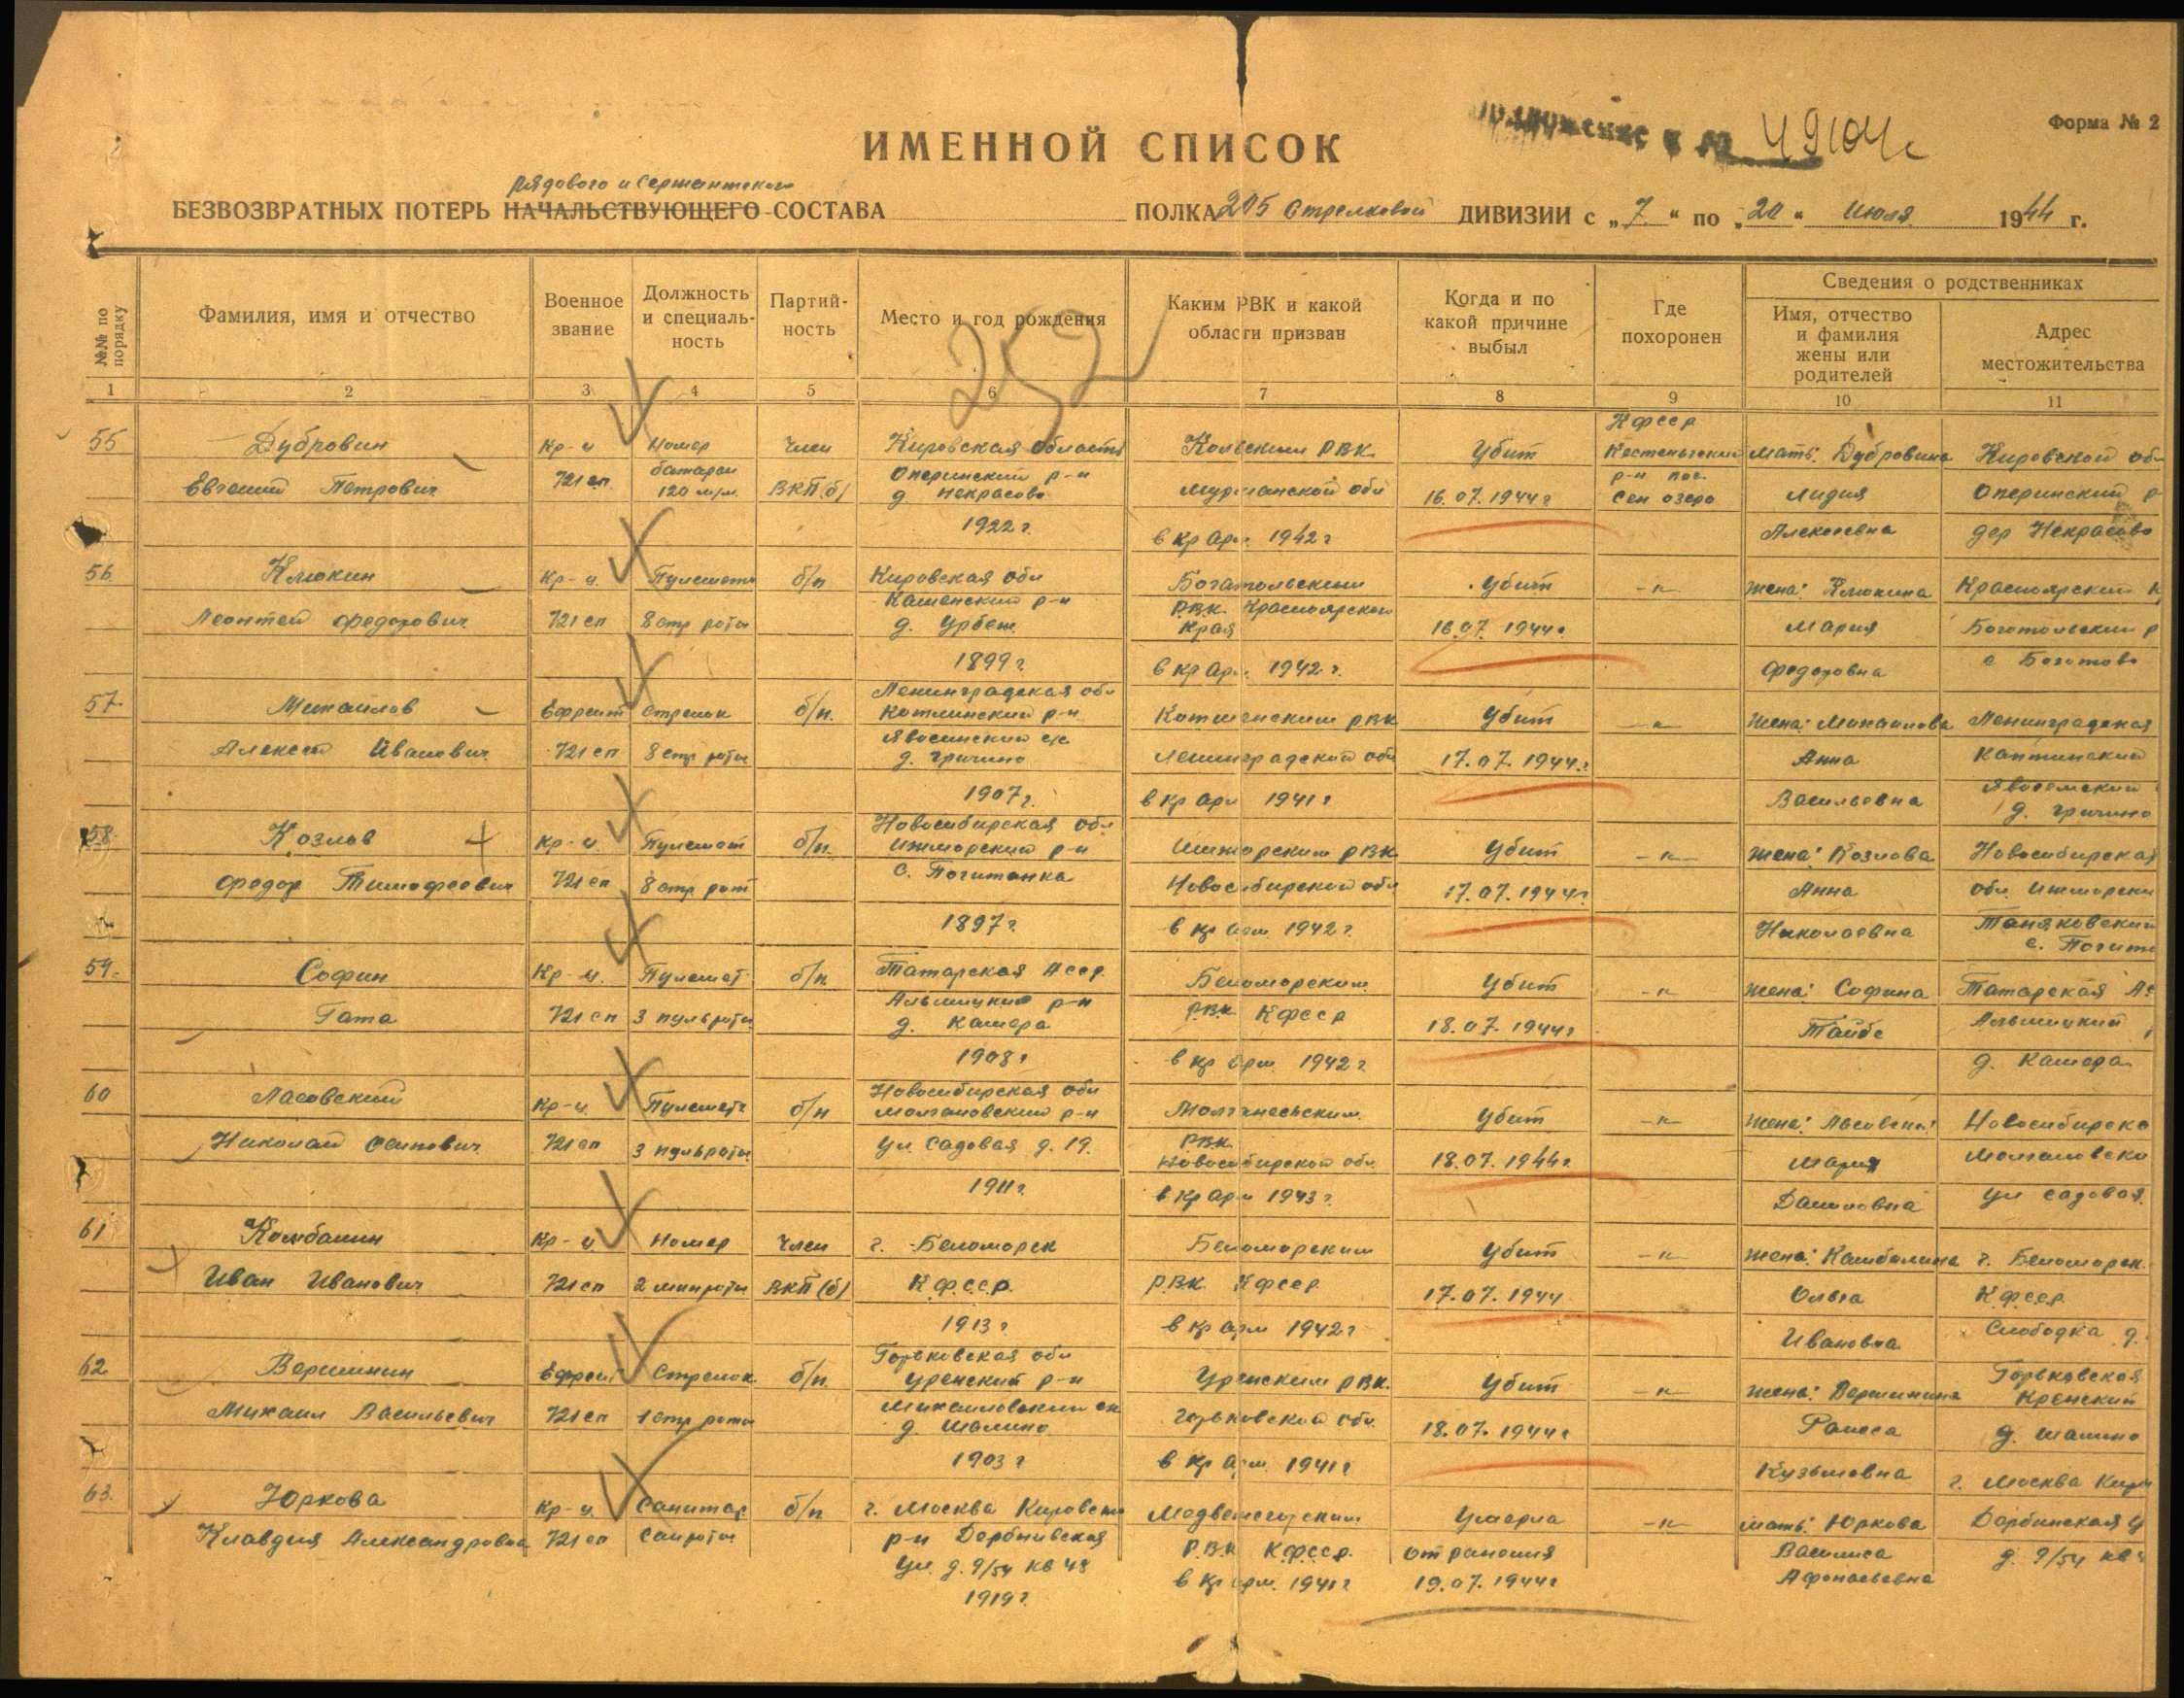 Форма № 2
ИМЕННОЙ СПИСОК
49104с
рядового и сержантского
БЕЗВОЗВРАТНЫХ ПОТЕРЬ НАЧАЛЬСТВУЮЩЕГО СОСТАВА ПОЛКА 205 Стрелковой ДИВИЗИИ с „7" по „20" Июля 1944 г.
№№ по порядку
Фамилия, имя и отчество
Военное звание
Должность и специаль-ность
Партий-ность
Место и год рождения
Каким РВК и какой области призван
Когда и по какой причине выбыл
Где похоронен
Сведения о родственниках
Имя, отчество и фамилия жены или родителей
Адрес местожительства
252
1 2 3 4 5 6 7 8 9 10 11
Кфсср
55 Дубровин Кр-ц Номер Член Кировская область Кольским РВК Убит Кестеньгский мать: Дубровина Кировской обл
Евгений Петрович 721 сп батареи 120 м/м. ВКП(б) Опаринский р-н д Некрасово Мурманской обл 16.07.1944г р-н пос. Сен озеро Лидия Опаринский р
1922г. в кр арм. 1942г Алексеевна дер Некрасово
56 Клюкин Кр-ц. Пулеметч б/п Кировская обл Боготольским Убит -"- жена: Клюкина Красноярский к
Леонтей Федорович 721 сп 8 стр роты р-н д. Урбеж РВК. Красноярского края 16.07.1944г. Мария Боготольский р
1899г в кр арм. 1942г. Федоровна с Боготол
57. Михайлов Ефрейт Стрелок б/п. Ленинградская обл р-н рвк Убит -"- жена: Михайлова Ленинградская
Алексей Иванович 721 сп 8 стр роты с/с д. Гричино Ленинградской обл 17.07.1944г. Анна
1907г. в кр арм 1941г Васильевна д. Гричино
58. Козлов Кр-ц Пулемет б/п. Новосибирская обл Ижморский р-н Ижморским рвк Убит -"- жена: Козлова Новосибирская
Федор Тимофеевич 721 сп 8 стр рот с. Почитанка Новосибирской обл 17.07.1944г. Анна обл. Ижморски
1897г. в кр арм 1942г. Николаевна с. Почит
59. Софин Кр-ц. Пулемет. б/п Татарская Асср. Беломорским Убит -"- жена: Софина Татарская Ас
Гата 721 сп 3 пульроты р-н д. Камера РВК Кфсср 18.07.1944г Тайбе
1908г в кр арм 1942г д. Камера
60 Ласовский Кр-ц. Пулеметч б/п Новосибирская обл р-н Убит -"- жена: Новосибирска
Николай Осипович 721 сп 3 пульроты ул Садовая д. 19. РВК Новосибирской обл. 18.07.1944г. Мария
1911г. в кр арм 1943г. Даниловна ул Садовая
61 Камбалин Кр-ц Номер Член г. Беломорск Беломорским Убит -"- жена: Камбалина г. Беломорск.
Иван Иванович 721 сп 2 минроты ВКП(б) К.ф.с.с.р. Р.В.К. Кфсср 17.07.1944 Ольга Кфсср
1913г в кр арм 1942г Ивановна Слободка д.
62 Вершинин Ефрей. Стрелок б/п. Горьковская обл Уренский р-н Уренским РВК. Убит -"- жена: Вершинина Горьковская
Михаил Васильевич 721 сп 1 стр роты Михайловский с/с д. Шалино Горьковской обл. 18.07.1944г Раиса д. Шалино
1903г в кр арм. 1941г Кузьмовна
63. Юркова Кр-ц. Санитар б/п г. Москва Кировский Медвежегорским Умерла -"- мать: Юркова г. Москва Кир
Клавдия Александровна 721 сп Санроты р-н Дербеневская Р.В.К Кфсср. от ранения Василиса Дербинская у
ул. д. 9/54 кв 48 в кр арм. 1941г 19.07.1944г Афонасьевна д. 9/54 кв
1919г.